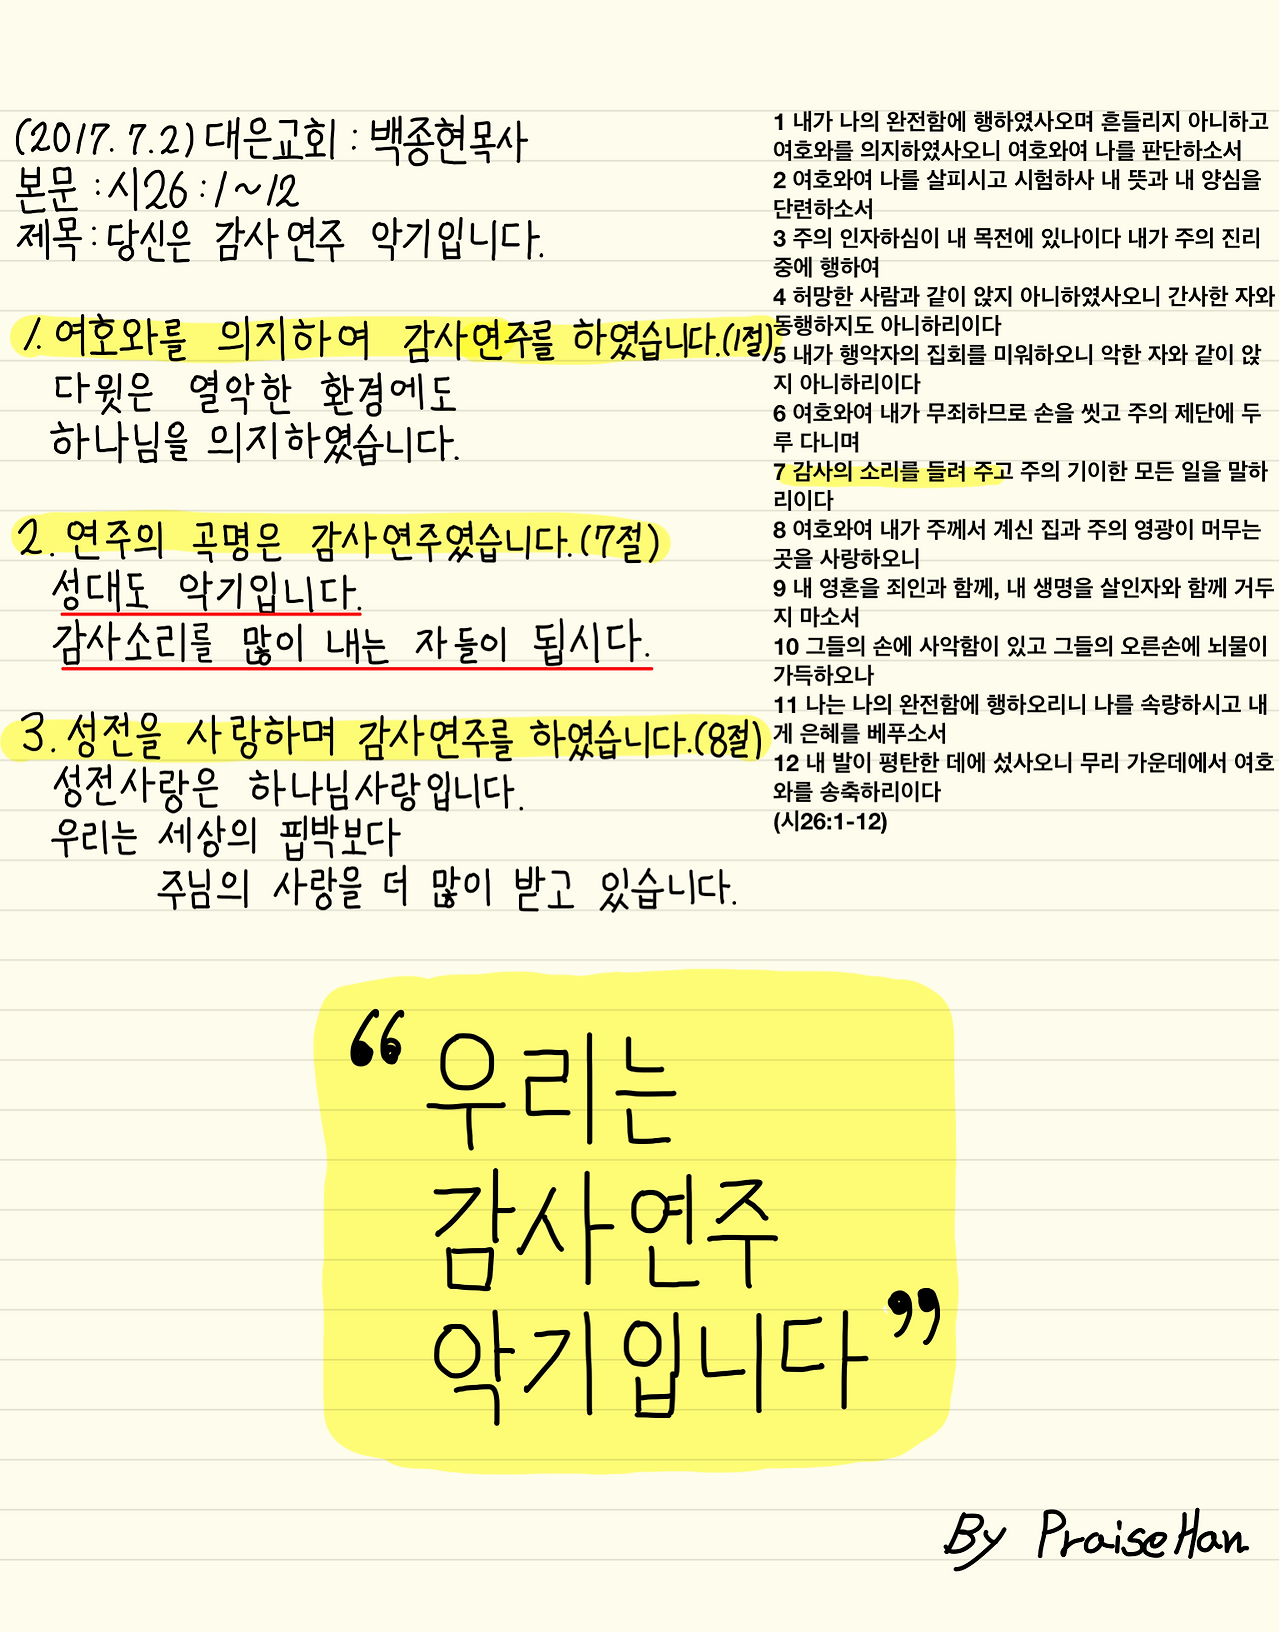 (2017. 7. 2) 대은교회 : 백종현목사
본문 : 시26 : 1~12
제목 : 당신은 감사연주 악기입니다.
1. 여호와를 의지하여 감사연주를 하였습니다.(1절)
다윗은 열악한 환경에도
하나님을 의지하였습니다.
2. 연주의 곡명은 감사연주였습니다.(7절)
성대도 악기입니다.
감사소리를 많이 내는 자들이 됩시다.
3. 성전을 사랑하며 감사연주를 하였습니다.(8절)
성전사랑은 하나님사랑입니다.
우리는 세상의 핍박보다
주님의 사랑을 더 많이 받고 있습니다.
1 내가 나의 완전함에 행하였사오며 흔들리지 아니하고
여호와를 의지하였사오니 여호와여 나를 판단하소서
2 여호와여 나를 살피시고 시험하사 내 뜻과 내 양심을
단련하소서
3 주의 인자하심이 내 목전에 있나이다 내가 주의 진리
중에 행하여
4 허망한 사람과 같이 앉지 아니하였사오니 간사한 자와
동행하지도 아니하리이다
5 내가 행악자의 집회를 미워하오니 악한 자와 같이 앉
지 아니하리이다
6 여호와여 내가 무죄하므로 손을 씻고 주의 제단에 두
루 다니며
7 감사의 소리를 들려 주고 주의 기이한 모든 일을 말하
리이다
8 여호와여 내가 주께서 계신 집과 주의 영광이 머무는
곳을 사랑하오니
9 내 영혼을 죄인과 함께, 내 생명을 살인자와 함께 거두
지 마소서
10 그들의 손에 사악함이 있고 그들의 오른손에 뇌물이
가득하오나
11 나는 나의 완전함에 행하오리니 나를 속량하시고 내
게 은혜를 베푸소서
12 내 발이 평탄한 데에 섰사오니 무리 가운데에서 여호
와를 송축하리이다
(시26:1-12)
“우리는
감사연주
악기입니다”
By PraiseHan